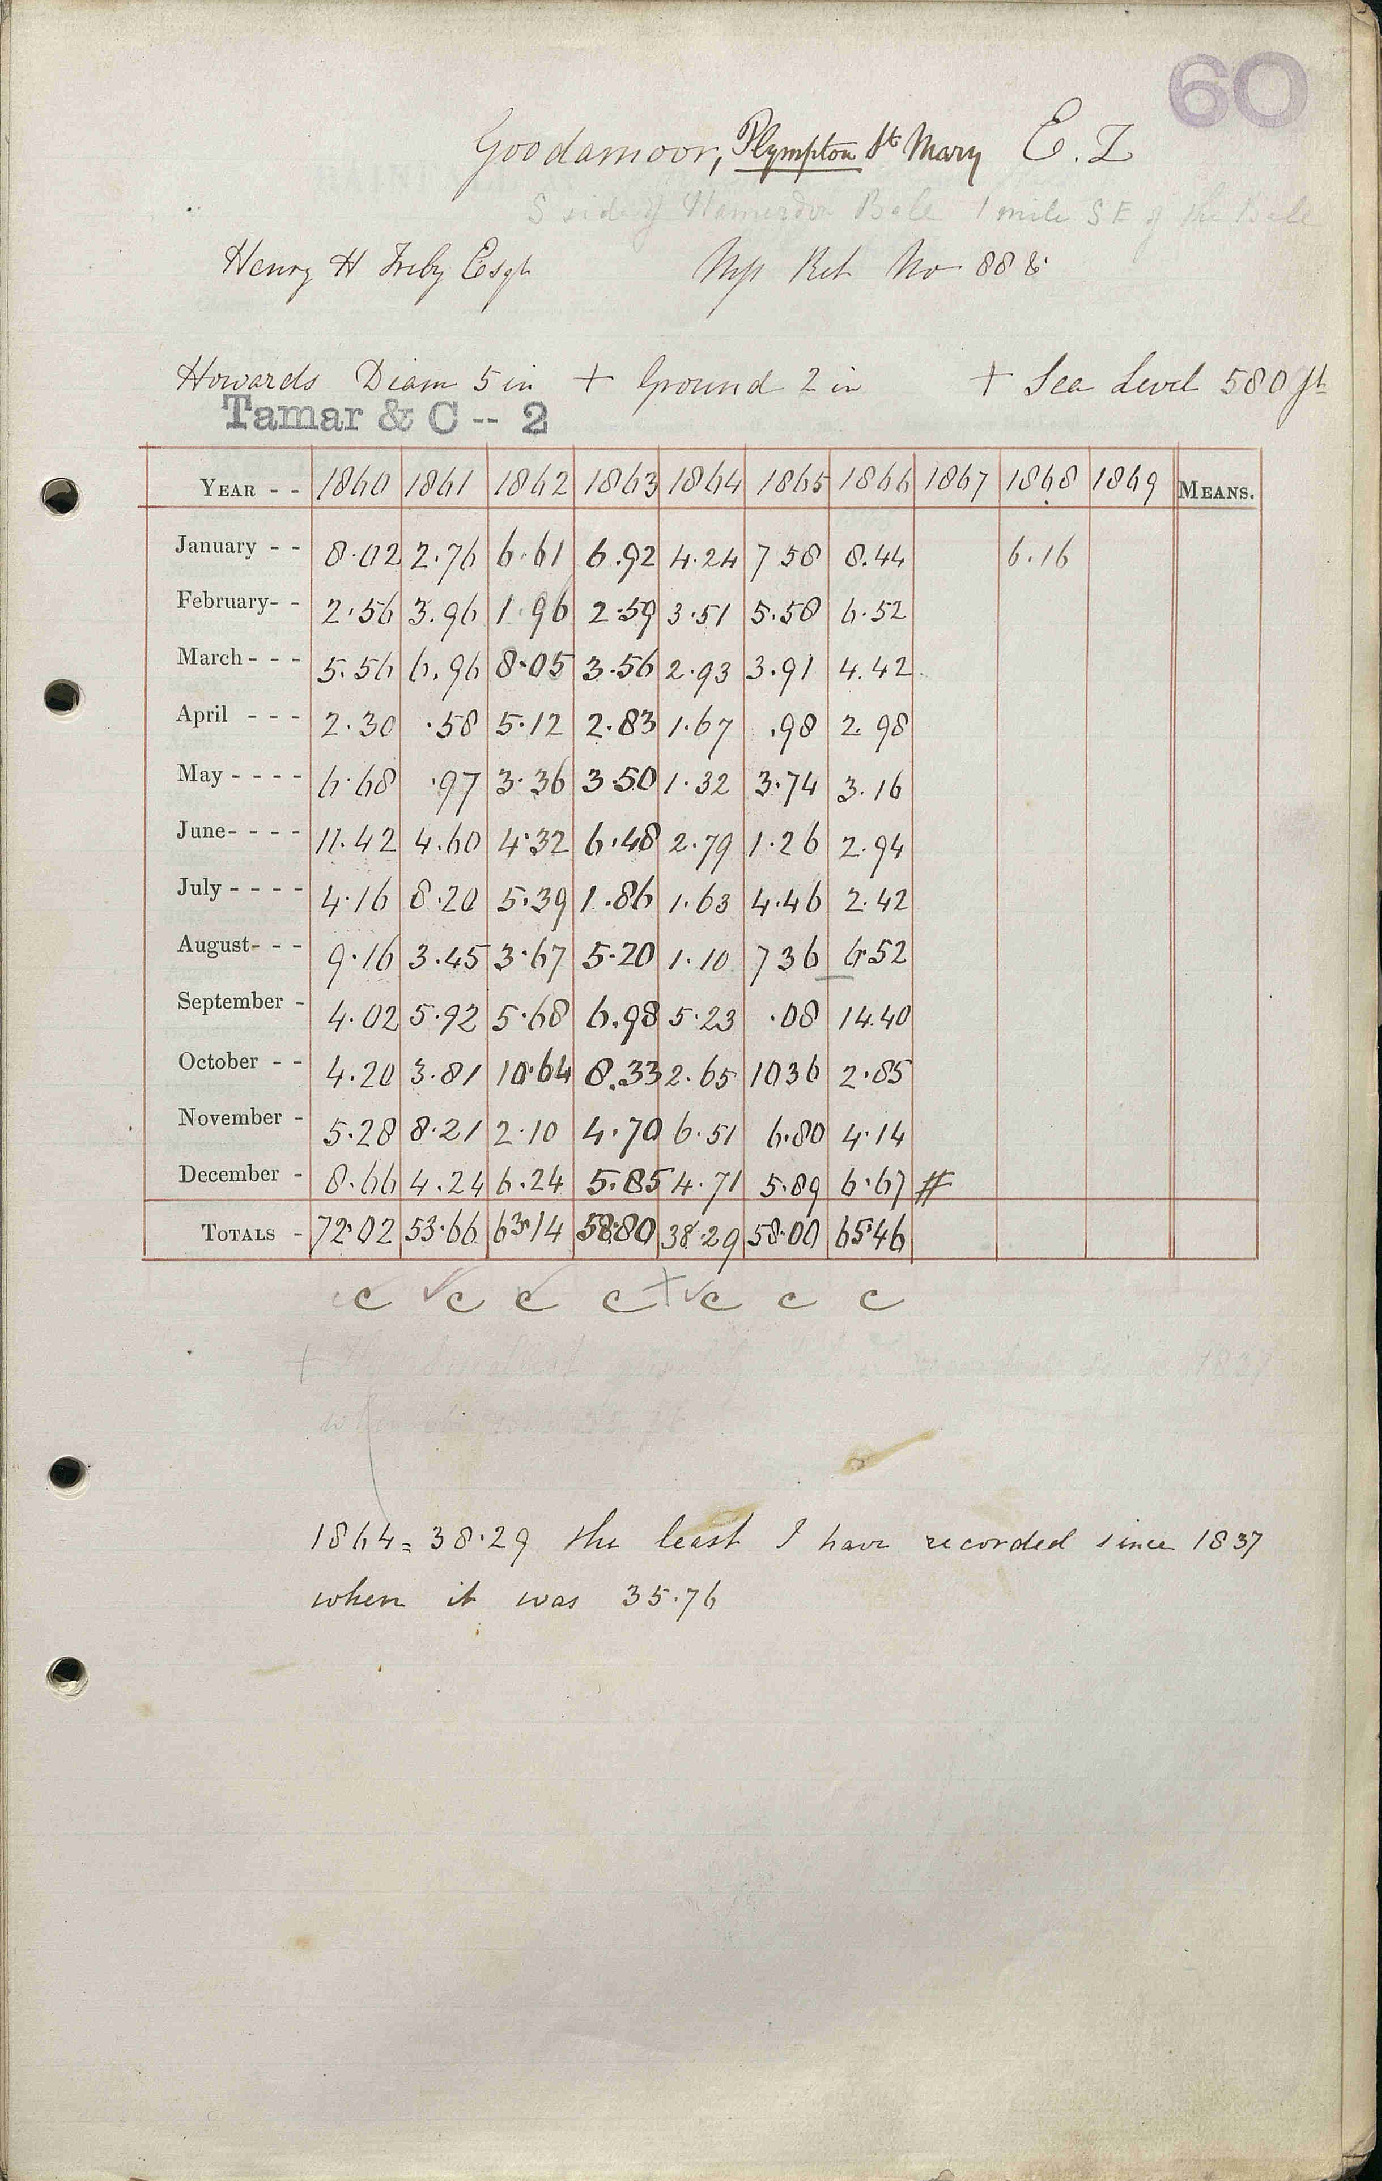 60
Goodamoor, Plympton St Mary E. I
S side of Hamerdon Bale 1 mile S E of the Bale
Henry H Treby Esqr Mss Ret No 888
Howards Diam 5 in + Ground 2 in + Sea Level 580 ft
Tamar & C -- 2
YEAR - - 1860 1861 1862 1863 1864 1865 1866 1867 1868 1869 MEANS.
January - - 8.02 2.76 6.61 6.92 4.24 7 58 8.44 6.16
February- - 2.56 3.96 1.96 2.59 3.51 5.58 6.52
March - - - 5.56 6.96 8.05 3.56 2.93 3.91 4.42
April - - - 2.30 .58 5.12 2.83 1.67 .98 2.98
May - - - - 6.68 .97 3.36 3.50 1.32 3.74 3.16
June- - - - 11.42 4.60 4.32 6.48 2.79 1.26 2.94
July - - - - 4.16 8.20 5.39 1.86 1.63 4.46 2.42
August- - - 9.16 3.45 3.67 5.20 1.10 7 36 6.52
September - 4.02 5.92 5.68 6.98 5.23 .08 14.40
October - - 4.20 3.81 10.64 8.33 2.65 10 36 2.85
November - 5.28 8.21 2.10 4.70 6.51 6.80 4.14
December - 8.66 4.24 6.24 5.85 4.71 5.89 6.67 #
TOTALS - 72.02 53.66 63.14 58.80 38.29 58.00 65.46
c c c c + c c c
1864 = 38.29 the least I have recorded since 1837
when it was 35.76